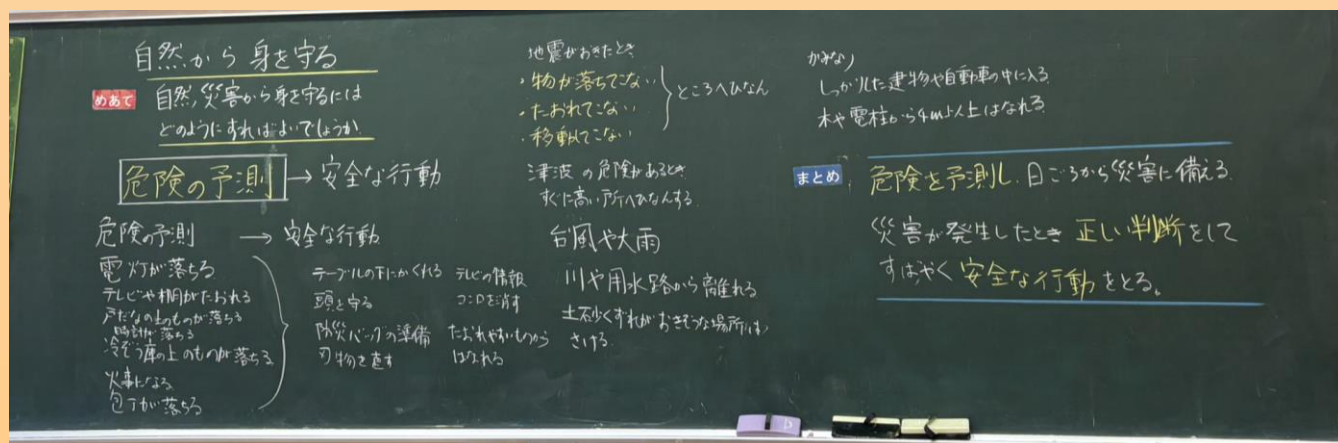 自然から身を守る
めあて
自然災害から身を守るには
どのようにすればよいでしょうか。
危険の予測→安全な行動
危険の予測→安全な行動
電灯が落ちる
テレビや棚がたおれる
戸だなの上のものが落ちる
時計が落ちる
冷ぞう庫の上のものが落ちる
火事になる
包丁が落ちる
テーブルの下にかくれる
頭を守る
防災バッグの準備
刃物を直す
テレビの情報
コンロを消す
たおれやすいものから
はなれる
地震がおきたとき
・物が落ちてこない
・たおれてこない
・移動してこない
ところへひなん
津波の危険があるとき
すぐに高い所へひなんする
台風や大雨
川や用水路から離れる
土砂くずれがおきそうな場所は
さける
かみなり
しっかりした建物や自動車の中に入る
木や電柱から4m以上はなれる
まとめ
危険を予測し、日ごろから災害に備える。
災害が発生したとき正しい判断をして
すばやく安全な行動をとる。